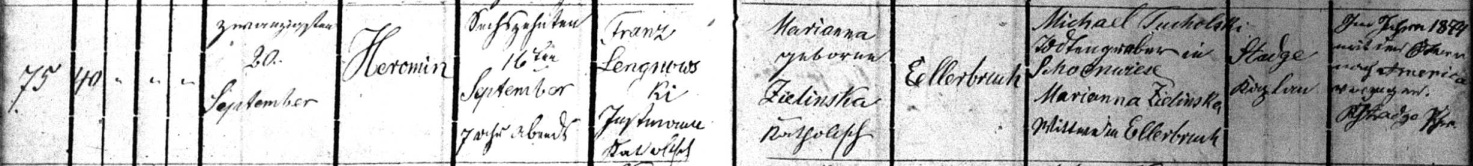 75
40
" " "
zwanzigsten
20.
September
Heromin
Sechszehnten
16ten
September
7 Uhr Abends
Franz
Lengnows
ki
Instmann
Katolisch
Marianna
geborne
Zielinska
Katholisch
Ellerbruch
Michael Tucholski
Todtengräber in
Schoenwiese
Marianna Zielinska,
Wittwe in Ellerbruch
Stadge
Kaplan
Im Jahre 1874
mit den Eltern
nach America